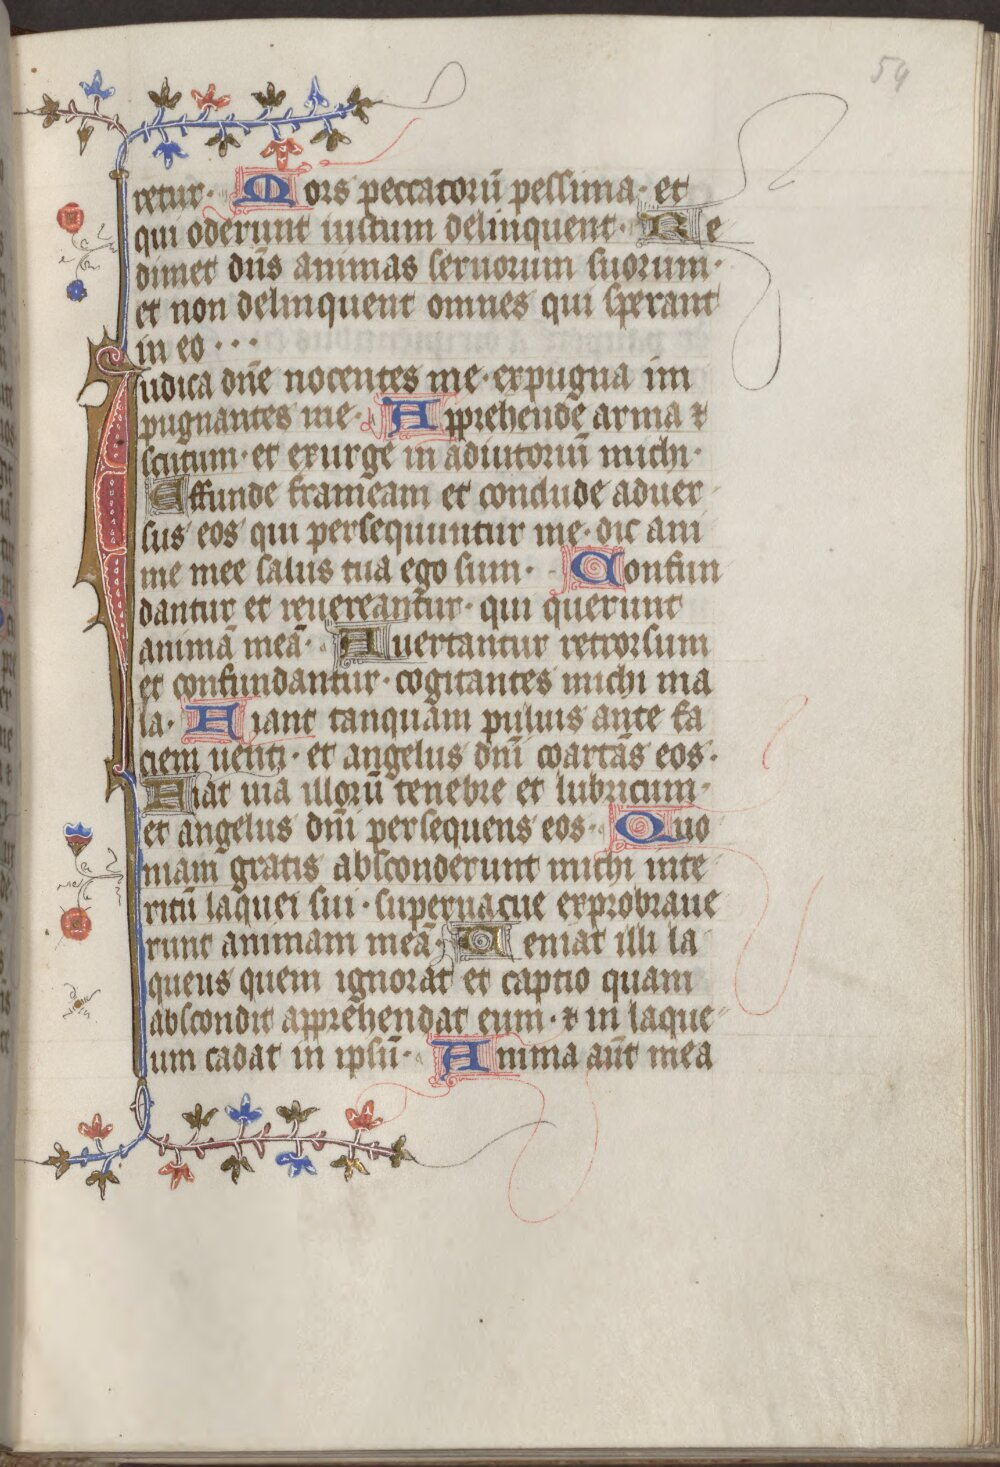 54
retur· Mors peccatorū pessima· et
qui oderunt iustum delinquent· Re
dimet dn̄s animas seruorum suorum·
et non delinquent omnes qui sperant
in eo···
Iudica dn̄e nocentes me· expugna im
pugnantes me· Apprehende arma ⁊
scutum· et exurge in adiutoriū michi·
Effunde frameam et conclude aduer
sus eos qui persequuntur me· dic ani
me mee salus tua ego sum· Confun
dantur et reuereantur· qui querunt
animā meā· Auertantur retrorsum
et confundantur· cogitantes michi ma
la· Fiant tanquam puluis ante fa
ciem uenti· et angelus dn̄i coartās eos·
Fiat uia illorū tenebre et lubricum·
et angelus dn̄i persequens eos· Quo
niam gratis absconderunt michi inte
ritū laquei sui· superuacue exprobraue
runt animam meā· Ueniat illi la
queus quem ignorat et captio quam
abscondit apprehendat eum· ⁊ in laque
um cadat in ipsū· Anima aūt mea